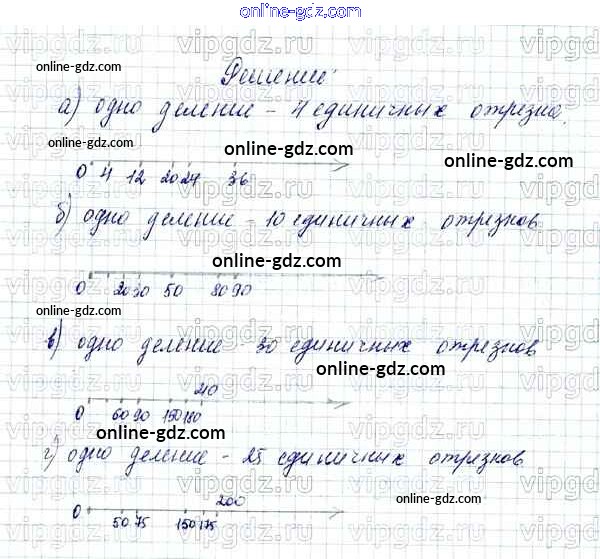 online-gdz.com
vipgdz.ru vipgdz.ru vipgdz
online-gdz.com
Решение:
online-gdz.com
а) одно деление - 4 единичных отрезка.
online-gdz.com
0 4 12 20 24 36
б) одно деление - 10 единичных отрезков
online-gdz.com
0 20 30 50 80 90
online-gdz.com
в) одно деление - 30 единичных отрезков
online-gdz.com
210
0 60 90 150 180
online-gdz.com
г) одно деление - 25 единичных отрезков
online-gdz.com
200
0 50 75 150 175